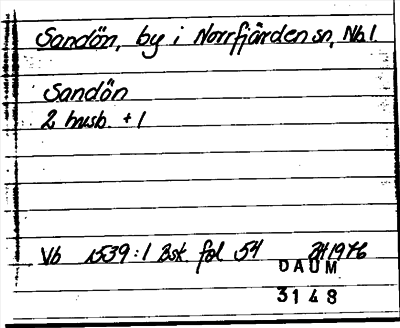 Sandön, by i Norrfjärden sn, Nb l
Sandön
2 husb. + 1
Vb 1539:1 Bsk. fol 54 1976
DAUM
3148